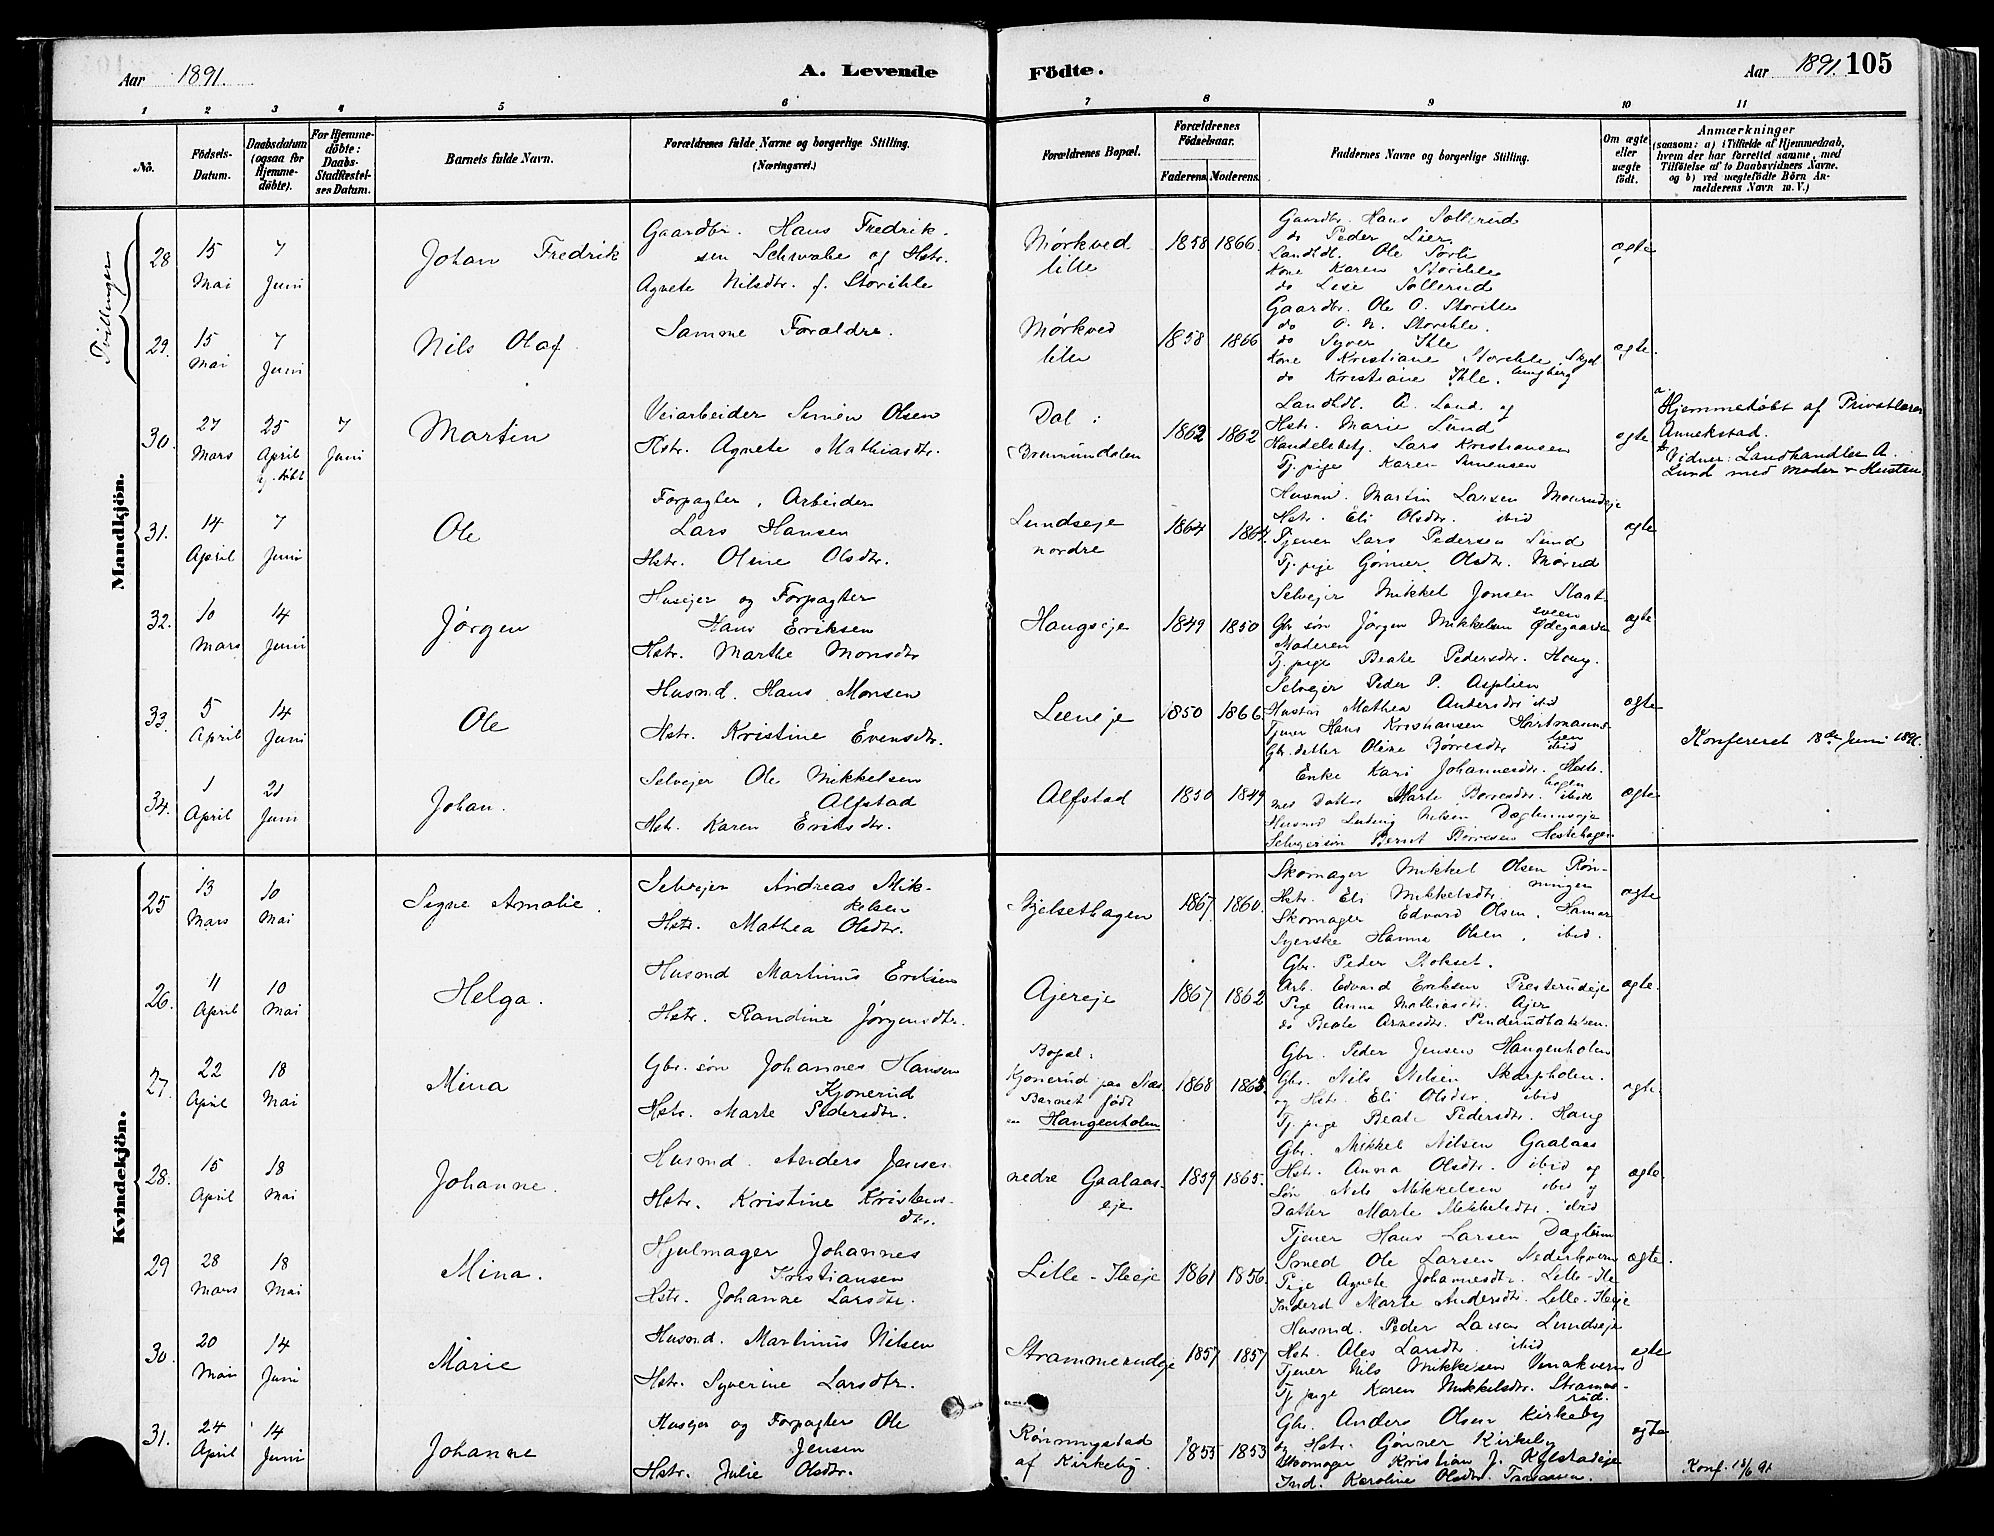 Aar 1891.
A. Levende Födte.
Aar 1891. 105
1 2 3 4 5 6 7 8 9 10 11
No.
Födsels-Datum.
Daabsdatum (ogsaa for Hjemme-döbte).
For Hjemme-döbte: Daabs-Stadfæstel-ses Datum.
Barnets fulde Navn.
Forældrenes fulde Navne og borgerlige Stilling. (Næringsvei.)
Forældrenes Bopæl.
Forældrenes Födselsaar.
Faderens. Moderens.
Faddernes Navne og borgerlige Stilling.
Om ægte eller uægte födt.
Anmærkninger (saasom: a) i Tilfælde af Hjemmedaab, hvem der har forrettet samme, med Tilföielse af to Daabsvidners Navne. og b) ved uægtefödte Börn An-melderens Navn m. V.)
Mandkjön.
Tvillinger
28 15 Mai 7 Juni
Johan Fredrik
Gaardbr. Hans Fredrik-
sen Schwabe og Hstr.
Agnete Nilsdtr. f. Storihle
Mørkved
lille
1858 1866
Gaardbr. Hans Sollerud
do Peder Lier.
Landhdl. Ole Sorli
Kone Karen Storihle
do Lise Sollerud
ægte
29. 15 Mai 7 Juni
Nils Olaf
Samme Forældre.
Mørkved
lille
1858 1866
Gaardbr. Ole O. Storihle
do O. N. Storihle.
do Syver Ihle
Kone Kristiane Storihle
do Kristiane Ihle.
ægte.
30. 27 Mars 25 April 7 Juni
Martin
Veiarbeider Simen Olsen
Hstr. Agnete Mathiasdtr.
Dal i
Brumunddalen
1862 1862
Landhdl. A. Lund og
Hstr. Marie Lund
Handelsbetj. Lars Kristiansen
Tj. pige Karen Simensen
ægte
a. Hjemmedøbt af Privatlærer
Annekstad.
b. Vidner: Landhandler A.
Lund med Moder + Hustru
31. 14 April 7 Juni
Ole
Forpagter, Arbeider
Lars Hansen
Hstr. Oline Olsdtr.
Lundseje
nordre
1864 1864.
Husmd. Martin Larsen
Hstr. Eli Olsdtr. ibid
Tjener Lars Pedersen Lund
Tj. pige Gønner Olsdtr. Mørud
ægte
32. 10 Mars 14 Juni
Jørgen
Husejer og Forpagter
Hans Eriksen
Hstr. Marthe Monsdtr
Haugseje
1849 1850
Selvejer Mikkel Jonsen Staat-
sveen
Gbr søn Jørgen Mikkelsen Ødegaarden
Moderen
Tj. pige Beate Pedersdtr. Haug.
ægte
33. 5 April 14 Juni
Ole
Husmd. Hans Monsen
Hstr. Kristine Evensdtr.
Lieneje
1850 1866
Selvejer Peder P. Asplien
Hustru Mathea Andersdtr ibid
Tjener Hans Kristiansen Hartmanns-
lien
Gbr. datter Oline Børresdtr ibid
ægte
Konfereret 18de Juni 1891.
34. 1 April 21 Juni
Johan.
Selvejer Ole Mikkelsen
Alfstad
Hstr. Karen Eriksdtr.
Alfstad
1850 1849
Enke Kari Johannesdtr. Heste-
hagen
med Datter Marte Børresdtr ibid
Husmd Ludvig Nilsen Dæglumseje
Selvejersøn Bernt Børresen Hestehagen
ægte
Kvindekjön.
25 13 Mars 10 Mai
Signe Amalie.
Selvejer Andreas Mik-
kelsen
Hstr. Mathea Olsdtr.
Njelsethagen
1867 1860.
Skomager Mikkel Olsen Røn-
ningen
Hstr. Eli Mikkelsdtr.
Skomager Edvard Olsen. Hamar
Syerske Hanna Olsen. ibid.
ægte
26. 11 April 10 Mai
Helga.
Husmd Martinus Eriksen
Hstr. Randine Jørgensdtr.
Ajereje
1867 1862
Gbr. Peder Stokset.
Arb. Edvard Eriksen Presterudeje
Pige Anna Mathiasdtr. Ajer
do Beate Arnesdtr.
ægte.
27. 22 April 18 Mai
Mina
Gbr. søn Johannes Hansen
Kjonerud
Hstr. Marte Pedersdtr.
Bopæl:
Kjonerud paa Næs
Barnet født
Haugenholen
1868 1865
Gbr. Peder Jensen Haugenholen
Gbr. Nils Nilsen Skarpholen.
og Hstr. Eli Olsdtr. ibid
Tj. pige Beate Pedersdtr. Haug
ægte.
28. 15 April 18 Mai
Johanne.
Husmd. Anders Jensen
Hstr. Kristine Kristens-
dtr.
nedre Gaalaas-
eje
1859 1865.
Gbr. Mikkel Nilsen Gaalaas
Hstr. Anna Olsdtr. ibid og
Søn Nils Mikkelsen ibid og
Datter Marte Mikkelsdtr. ibid
ægte.
29 28 Mars 18 Mai
Mina.
Hjulmager Johannes
Kristiansen
Hstr. Johanne Larsdtr.
Lille-Ileeje
1861 1856.
Tjener Hans Larsen Daglum
Smed Ole Larsen Nederkvern
Pige Agnete Johannesdtr. Lille-Ile
Inderst Marte Andersdtr. Lille-Ileeje
ægte.
30. 20 Mai 14 Juni
Marie
Husmd. Martinus Nilsen
Hstr. Syverine Larsdtr.
Strammerudeje
1857 1857
Husmd. Peder Larsen Lundseje
Hstr. Ales Larsdtr. ibid
Tjener Nils Mikkelsen Vinakvern
Tj. pige Karen Mikkelsdtr. Stramme-
rud.
ægte
31. 24 April 14 Juni
Johanne
Husejer og Forpagter Ole
Jensen
Hstr. Julie Olsdtr.
Rønningstad
af Kirkeby.
1855 1853
Gbr. Anders Olsen Kirkeby
og Hstr. Gønner Kirkeby
Skomager Kristian J. Kylstadeje
Ind. Karoline Olsdtr.
ægte
Konf. 18/6 91